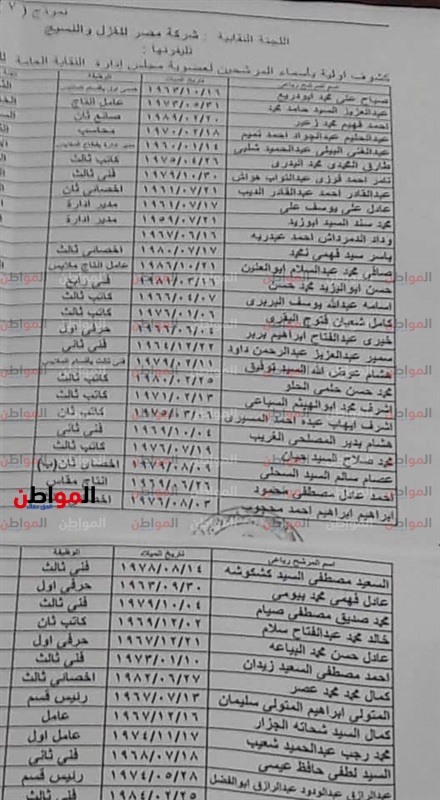 نموذج (٧
اللجنة النقابية : شركة مصر للغزل والنسيج
تليفونها :
كشوف اولية بأسماء المرشحين لعضوية مجلس إدارة النقابة العامة
اسم المرشح رباعي تاريخ الميلاد الوظيفة
صباح على محمد ابودريع ١٩٦٣/١٠/١٦
عبدالعزيز السيد حامد محمد ١٩٧٣/٠٥/٣١ عامل انتاج
احمد فهيم محمد زعير ١٩٨٩/٠٢/٠٨ صانع ثان
عبدالحليم عبدالجواد احمد تميم ١٩٧٠/٠٢/١٨ محاسب
عبدالغنى البيلى عبدالحميد شلبى ١٩٦٠/٠١/١٤
طارق المهدى محمد البدرى ١٩٧٥/٠٤/٢٦ كاتب ثالث
تامر احمد فوزى عبدالتواب حواش ١٩٧٩/١٠/٣٠ فنى ثالث
عبدالقادر احمد عبدالقادر الديب ١٩٦١/٠٧/٢١ اخصائى ثان
عادل على يوسف على ١٩٦١/٠٧/٢١ مدير ادارة
محمد سند السيد ابوزيد ١٩٥٩/٠٧/٢١ مدير ادارة
وداد الدمرداش احمد عبدربه ١٩٦٧/٠٦/١٦
ياسر سيد فهمى ١٩٨٠/٠٧/١٧ اخصائى ثالث
صافى محمد عبدالسلام ابوالعنون ١٩٨٦/١٠/٢١ عامل انتاج ملابس
حسن ابواليزيد محمد حسن ١٩٨١/٠٣/١٦ فنى رابع
اسامه عبدالله يوسف البربرى ١٩٦٦/٠٤/٠٧ كاتب ثالث
كامل شعبان فتوح البقرى ١٩٧٦/٠١/٠٦ كاتب ثالث
خيرى عبدالفتاح ابراهيم بربر ١٩٦٣/٠٦/٠٤ حرفى اول
سمير عبدالعزيز عبدالرحمن داود ١٩٦٤/١٢/٢٢ فنى ثانى
هشام عوض الله السيد توفيق ١٩٧٩/٠٢/١١
محمد حسن حلمى الحلو ١٩٨٠/٠٢/٢٥ كاتب ثالث
اشرف محمد ابوالهيثم السباعى ١٩٧١/٠٥/٠٢ كاتب ثالث
اشرف ايهاب عبده احمد المسيرى ١٩٧٥/٠٣/٠٦ كاتب ثان
هشام بدير المصلحى الغريب ١٩٦٩/١٠/٠٤ فنى ثانى
محمد صلاح السيد ١٩٧٦/٠٧/١٩ كاتب ثالث
عصام سالم السيد المحلى ١٩٧٩/٠٨/٠٩ اخصائى ثان(ب)
احمد عادل مصطفى محمود ١٩٦٩/٠٦/٢٦
ابراهيم ابراهيم احمد محجوب ١٩٧٦/٠٨/٠٣ اخصائى ثان
المواطن
اسم المرشح رباعي تاريخ الميلاد الوظيفة
السعيد مصطفى السيد كشكوشه ١٩٧٨/٠٨/١٤ فنى ثالث
عادل فهمى محمد بيومى ١٩٦٣/٠٩/٣٠ حرفى اول
محمد صديق مصطفى صيام ١٩٧٩/١٠/٠٤ فنى ثالث
خالد محمد عبدالفتاح سلام ١٩٦٩/١٢/٠٢ كاتب ثان
عادل حسن محمد البياعه ١٩٦٧/١٢/٢١ حرفى اول
احمد مصطفى السعيد زيدان ١٩٧٣/٠١/١٠ فنى ثالث
كمال محمد محمد عصر ١٩٨٢/٠٦/٢٧ اخصائى ثالث
المتولى ابراهيم المتولى سليمان ١٩٦٧/٠٧/١٣ رئيس قسم
كمال السيد شحاته الجزار ١٩٦٧/١٢/١٦ عامل
محمد رجب عبدالحميد شعيب ١٩٧٤/١١/١٧ حرفى اول
السيد لطفى حافظ عيسى ١٩٦٨/٠٧/١٨ فنى ثانى
عبدالرازق عبدالودود عبدالرازق ابوالفضل ١٩٧٤/٠٥/٢٨ رئيس قسم
١٩٨٤/٠٢/٢٥ فنى ثالث